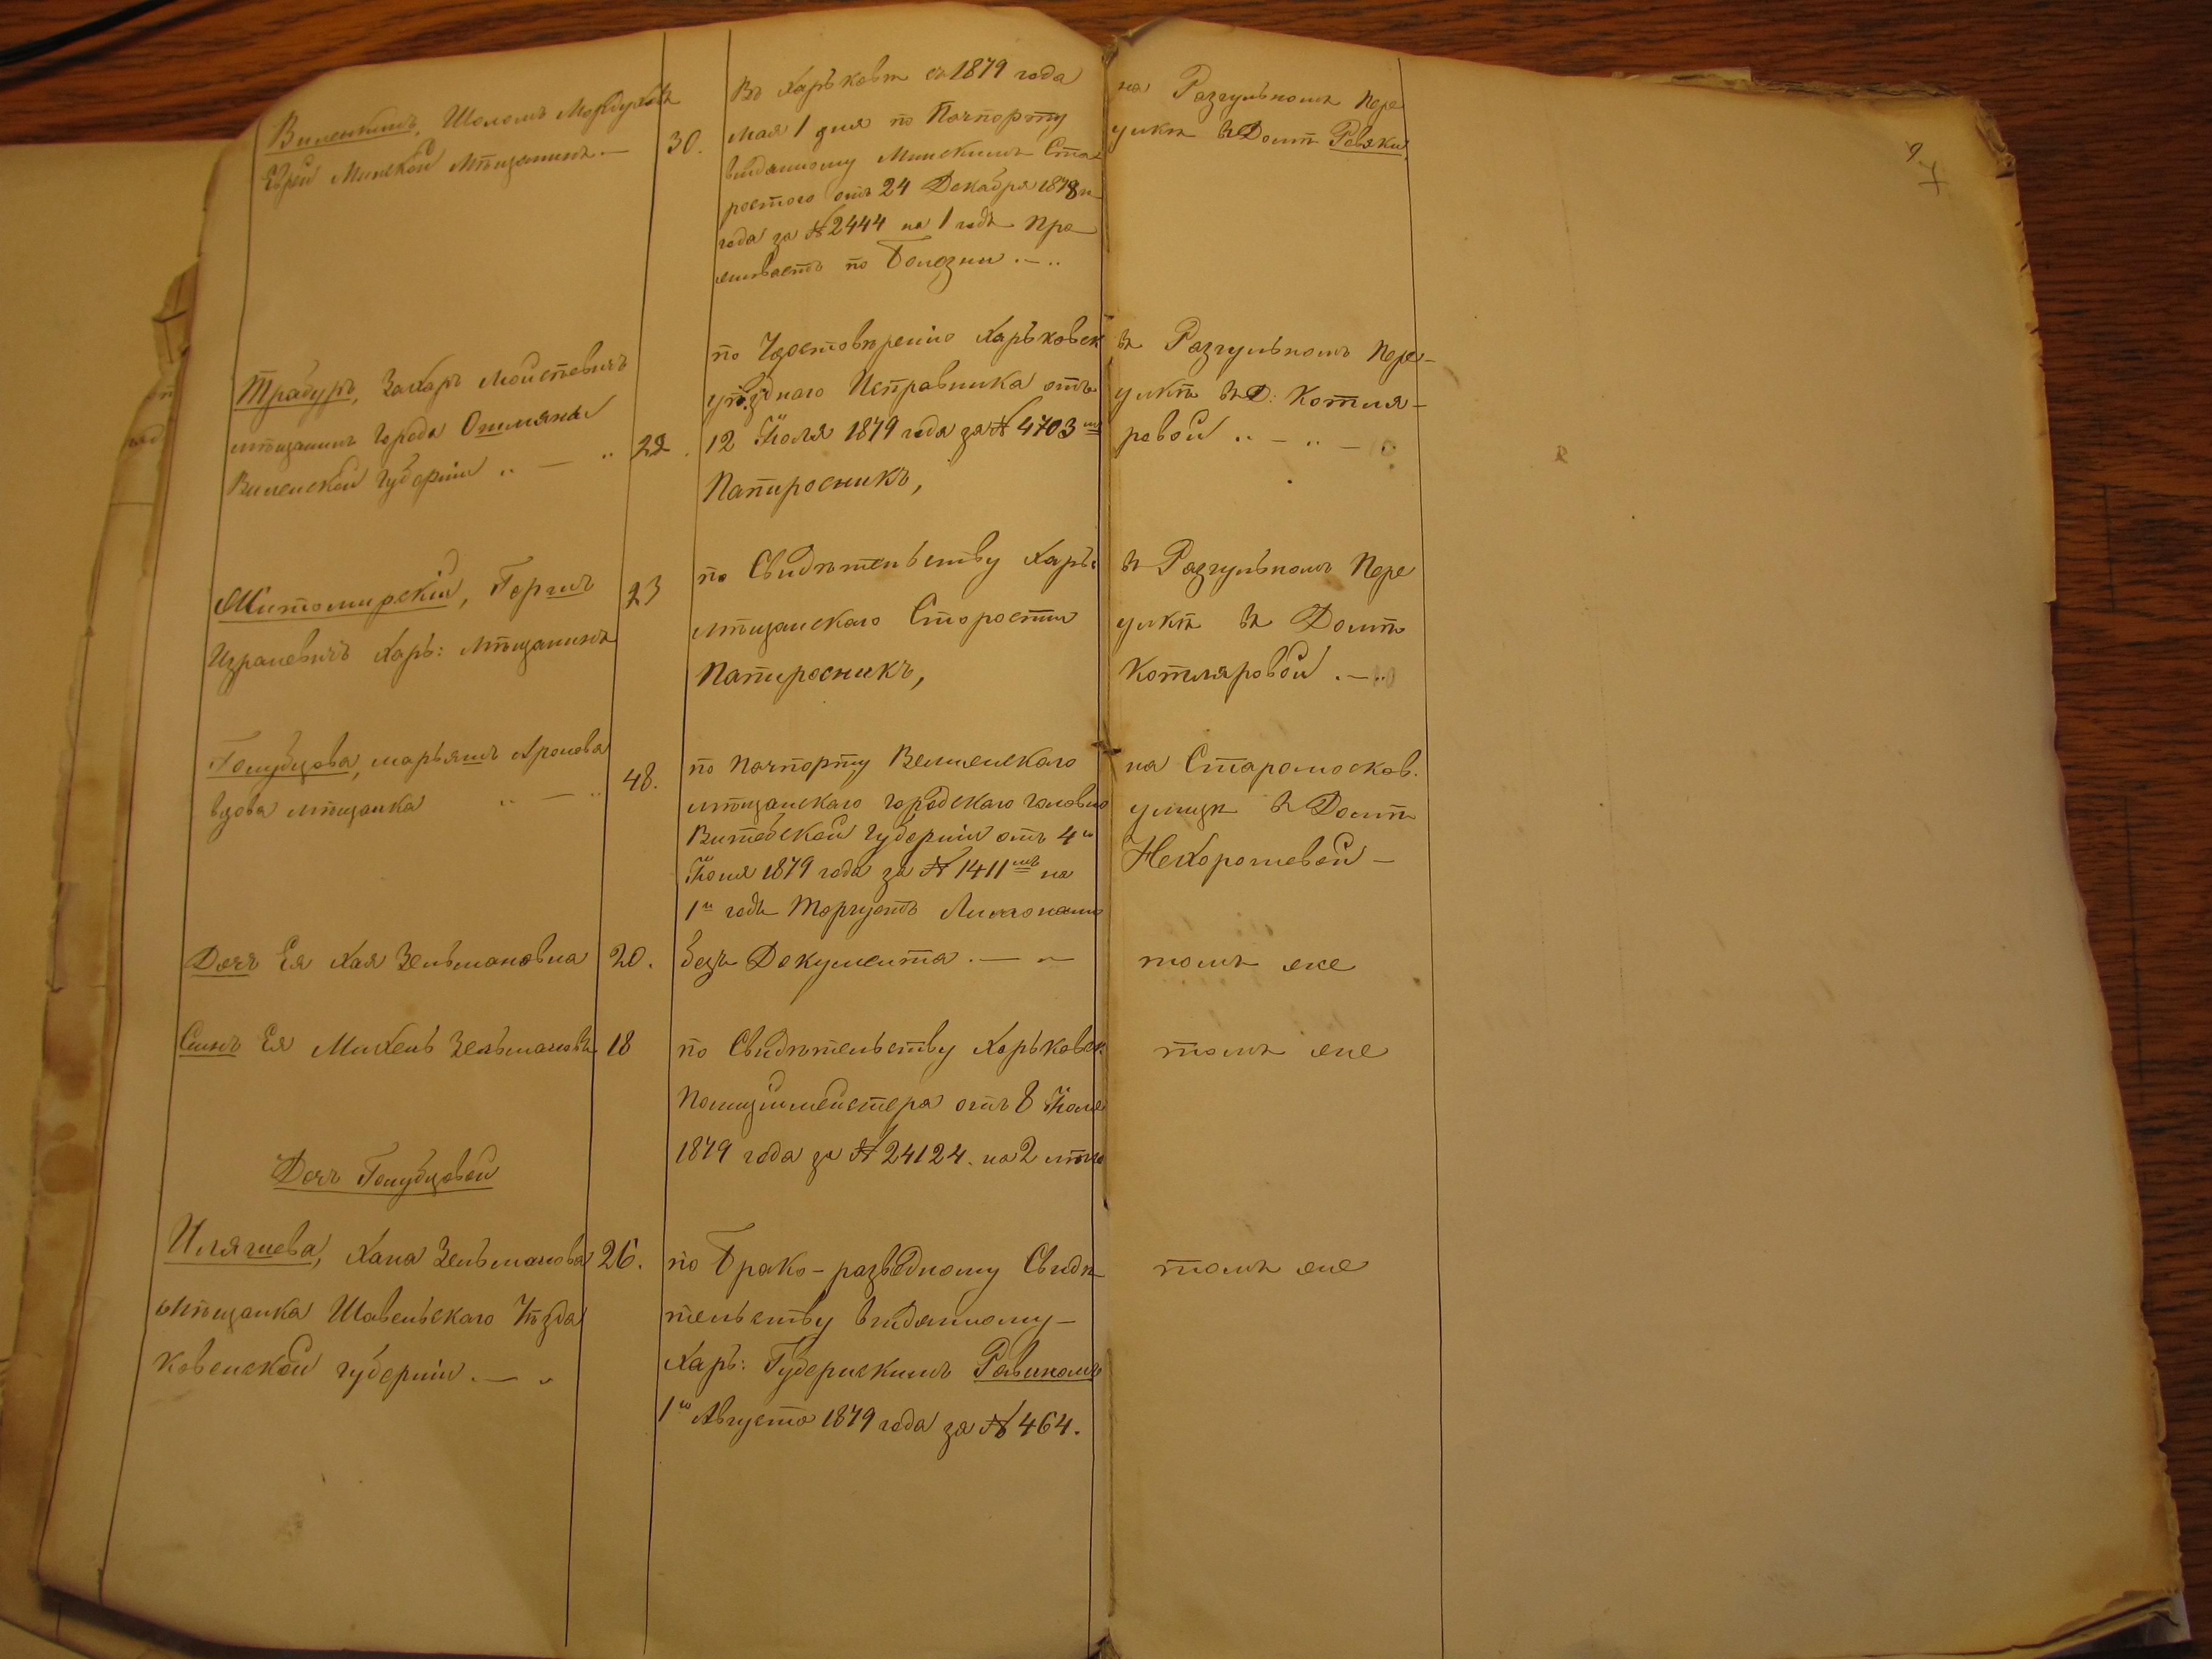 Виленкинъ, Шоломъ Мордуховъ
Еврей Минской Мѣщанинъ. —
30.
Въ Харьковѣ съ 1879 года
Мая 1 дня по Пачпорту
выданному Минскимъ Ста-
ростою отъ 24 Декабря 1878
года за № 2444 на 1 годъ Про
живаетъ по Болезни . — ..
на Разгульномъ Пере
улкѣ въ Домѣ Ревяки
7
Трабуръ, Захаръ Моисѣевичъ
мѣщанинъ Города Ошмяна
Виленской Губерніи .. — ..
22.
по Удостовѣренію Харьковск
уѣзднаго Исправника отъ
12 Іюля 1879 года за № 4703
Папиросникъ,
въ Разгульномъ Пере-
улкѣ въ Д: Котля-
ровой .. — .. —
Житомирскій, Горшъ
Израилевичъ Харь: Мѣщанинъ
23
по Свидѣтельству Харь:
мѣщанскаго Старосты
Папиросникъ,
въ Разгульномъ Пере
улкѣ въ Домѣ
Котляровой . — ..
Голубцова, Марьямъ Аронова
вдова мѣщанка .. — ..
48.
по Пачпорту Велижскаго
мѣщанскаго городскаго головы
Витебской Губерніи отъ 4го
Іюня 1879 года за № 1411мъ на
1н годъ Торгуетъ Лимонами
на Старомосков.
улицѣ въ Домѣ
Нехорошевой —
Дочь Ея Хая Зельмановна
20.
безъ Документа . — —
томъ же
Сынъ Ея Михель Зельмановъ
18
по Свидѣтельству Харьковск.
Полиціймейстера отъ 8 Іюля
1879 года за № 24124. на 2 мѣся
томъ же
Дочь Голубцовой
Илягиева, Хана Зельманова
мѣщанка Шавельскаго Уѣзда
Ковенской губерніи. — „
26.
по Брако-разводному Свидѣ
тельству выданному —
Харь: Губернскимъ Равиномъ
1го Августа 1879 года за № 464.
томъ же